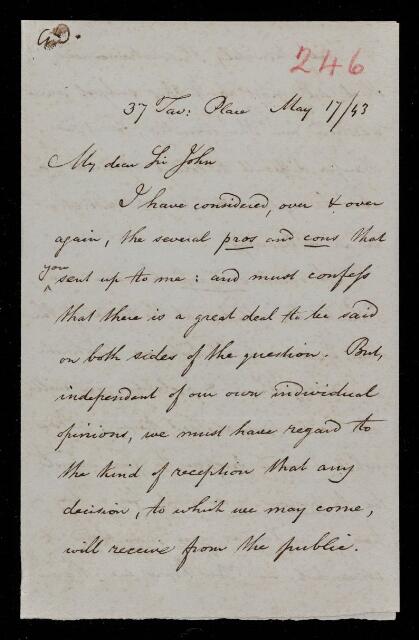 246
37 Tav: Place May 17/43
My dear Sir John
I have considered, over & over
again, the several pros and cons that
you
sent up to me: and must confess
that there is a great deal to be said
on both sides of the question. But,
independent of our own individual
opinions, we must have regard to
the kind of reception that any
decision, to which we may come,
will receive from the public.